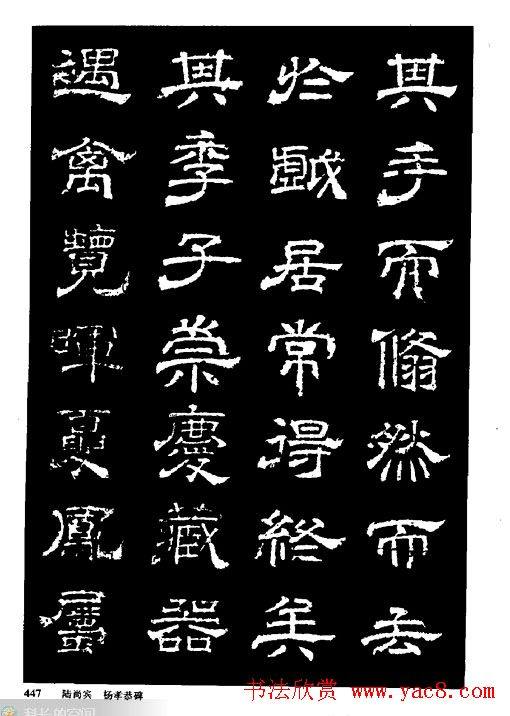 其手而翛然而去
於戲居常得終矣
其季子崇慶藏器
遇禽覽暉戛鳳
447 陆尚宾 杨孝恭碑
书法欣赏 www.yac8.com
科长的空间